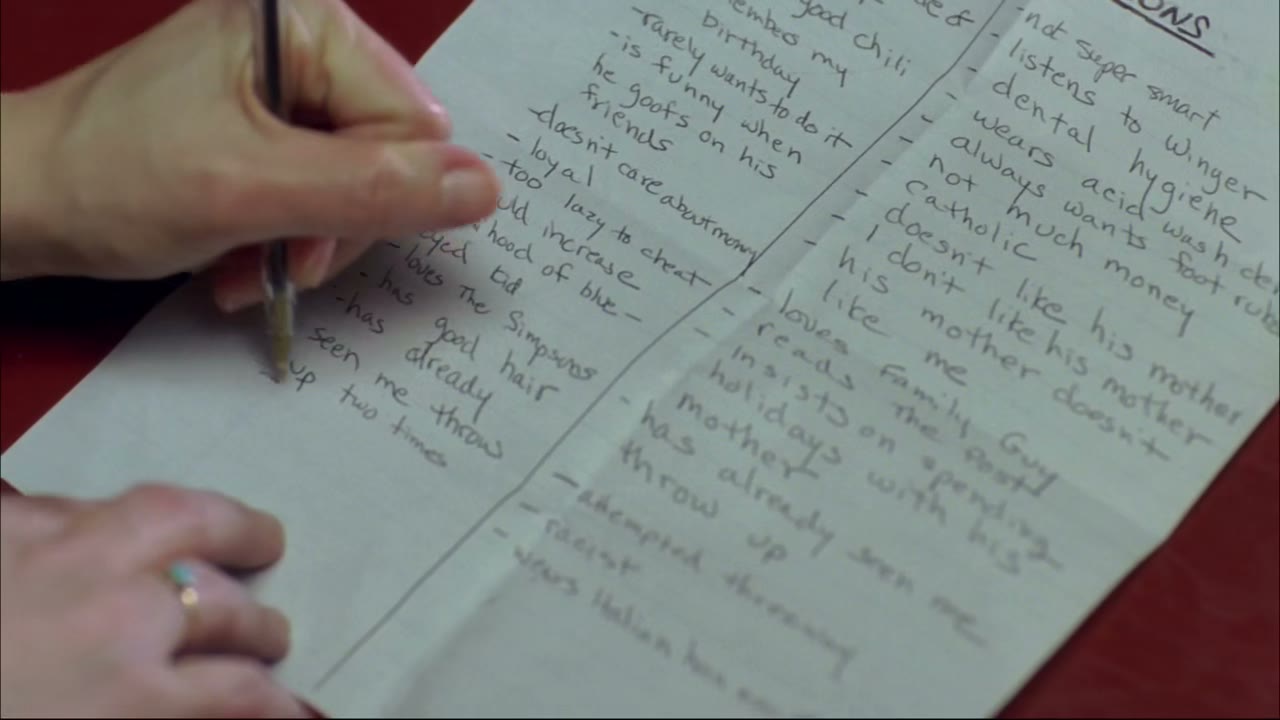 good chili
my
birthday
-rarely wants to do it
-is funny when
he goofs on his
friends
-doesn't care about money
- loyal
- too lazy to cheat
increase
hood of blue-
eyed kid
- loves The Simpsons
- has good hair
-has already
seen me throw
up two times
CONS
-not super smart
- listens to Winger
- dental hygiene
- wears acid wash
- always wants foot
- not much money
- catholic
- doesn't like his mother
- I don't like his mother
- his mother doesn't
like me
- loves Family Guy
- reads The Post
- Insists on spending
holidays with his
mother
- has already seen me
throw up
- attempted threeway
- racist
- wears Italian